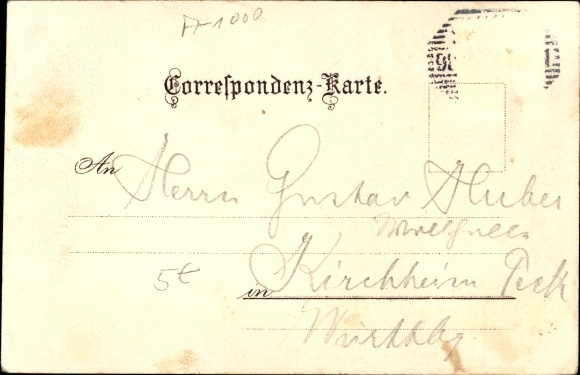 A-1000
Correspondenz-Karte.
An Herrn Gustav Huber
5€
in Kirchheim Teck
Württbg